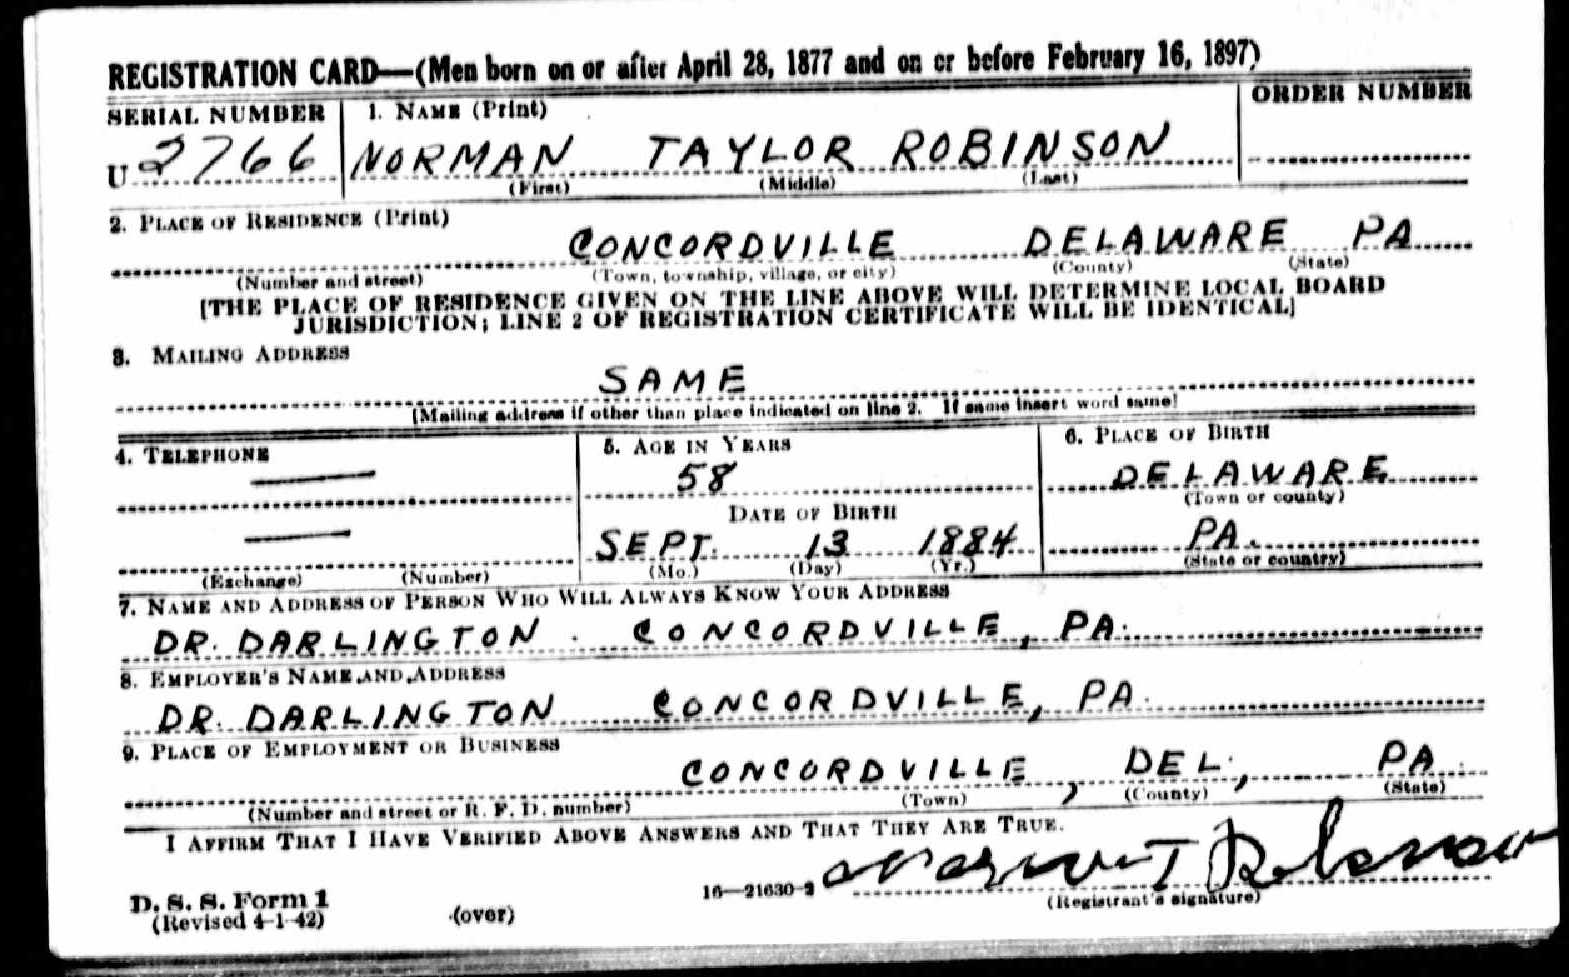 REGISTRATION CARD—(Men born on or after April 28, 1877 and on or before February 16, 1897)
SERIAL NUMBER 1. NAME (Print) ORDER NUMBER
U 2766 NORMAN TAYLOR ROBINSON
(First) (Middle) (Last)
2. PLACE OF RESIDENCE (Print)
CONCORDVILLE DELAWARE PA
(Number and street) (Town, township, village, or city) (County) (State)
[THE PLACE OF RESIDENCE GIVEN ON THE LINE ABOVE WILL DETERMINE LOCAL BOARD
JURISDICTION; LINE 2 OF REGISTRATION CERTIFICATE WILL BE IDENTICAL]
3. MAILING ADDRESS
SAME
[Mailing address if other than place indicated on line 2. If same insert word same]
4. TELEPHONE 5. AGE IN YEARS 6. PLACE OF BIRTH
— 58 DELAWARE
(Town or county)
DATE OF BIRTH
— SEPT. 13 1884 PA.
(Exchange) (Number) (Mo.) (Day) (Yr.) (State or country)
7. NAME AND ADDRESS OF PERSON WHO WILL ALWAYS KNOW YOUR ADDRESS
DR. DARLINGTON . CONCORDVILLE, PA.
8. EMPLOYER'S NAME AND ADDRESS
DR. DARLINGTON CONCORDVILLE, PA.
9. PLACE OF EMPLOYMENT OR BUSINESS
CONCORDVILLE, DEL., PA.
(Number and street or R. F. D. number) (Town) (County) (State)
I AFFIRM THAT I HAVE VERIFIED ABOVE ANSWERS AND THAT THEY ARE TRUE.
D. S. S. Form 1 16—21630-2 Norman T Robinson
(Revised 4-1-42) (over) (Registrant's signature)